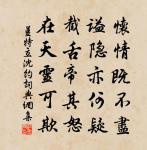 懷情既不盡
謚隱亦何疑
截舌帝其恕
在天靈可欺
姜特立沈約詞典網集